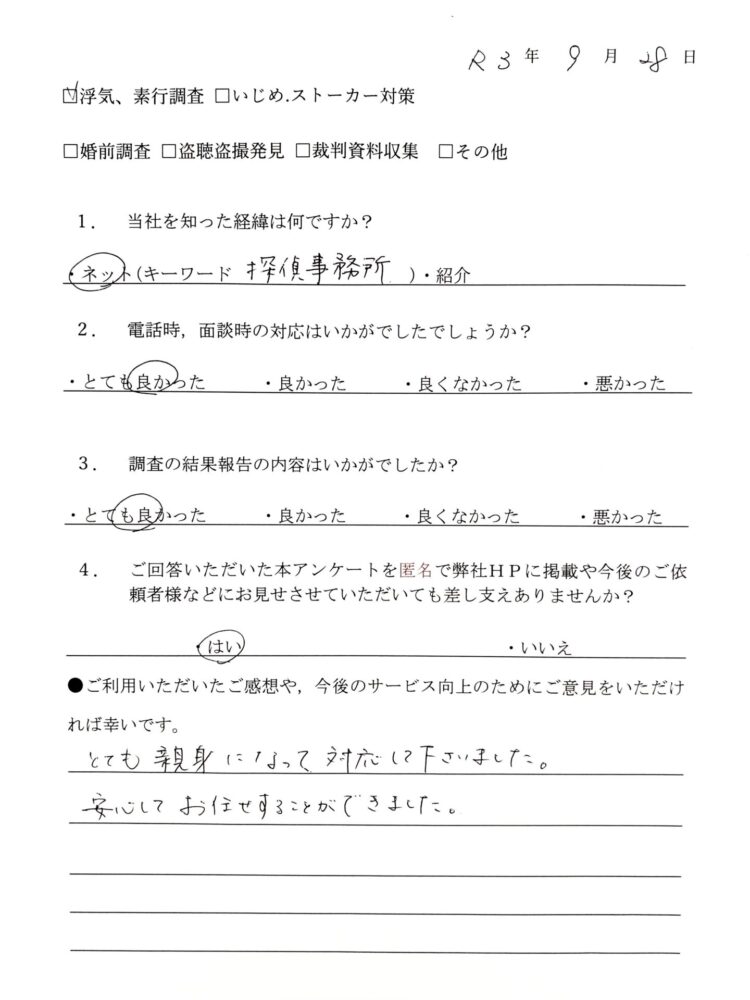 R3年 9月 28日
☑浮気、素行調査 □いじめ.ストーカー対策
□婚前調査 □盗聴盗撮発見 □裁判資料収集 □その他
1. 当社を知った経緯は何ですか？
・ネット(キーワード 探偵事務所 )・紹介
2. 電話時，面談時の対応はいかがでしたでしょうか？
・とても良かった ・良かった ・良くなかった ・悪かった
3. 調査の結果報告の内容はいかがでしたか？
・とても良かった ・良かった ・良くなかった ・悪かった
4. ご回答いただいた本アンケートを匿名で弊社ＨＰに掲載や今後のご依
頼者様などにお見せさせていただいても差し支えありませんか？
・はい ・いいえ
●ご利用いただいたご感想や，今後のサービス向上のためにご意見をいただけ
れば幸いです。
とても親身になって対応して下さいました。
安心してお任せすることができました。